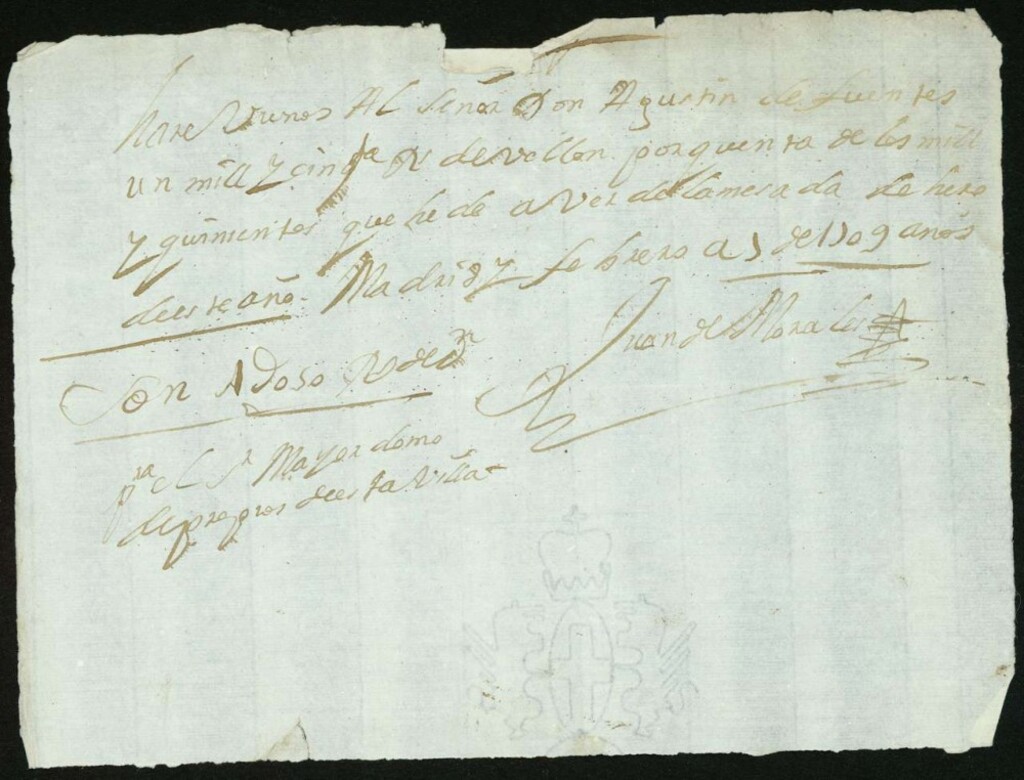 hare Vuenos Al señor Don Agustin de fuentes
un mill y cinq.ta R de vellon por quenta de los mill
y quinientos que he de aver de la mesada de hero
deeste año. Madrid y febrero a 5 de 1709 años
Juan de Morales
Son 1U050 Rs de
p.ra el S.r Mayordomo
de propios deesta Villa